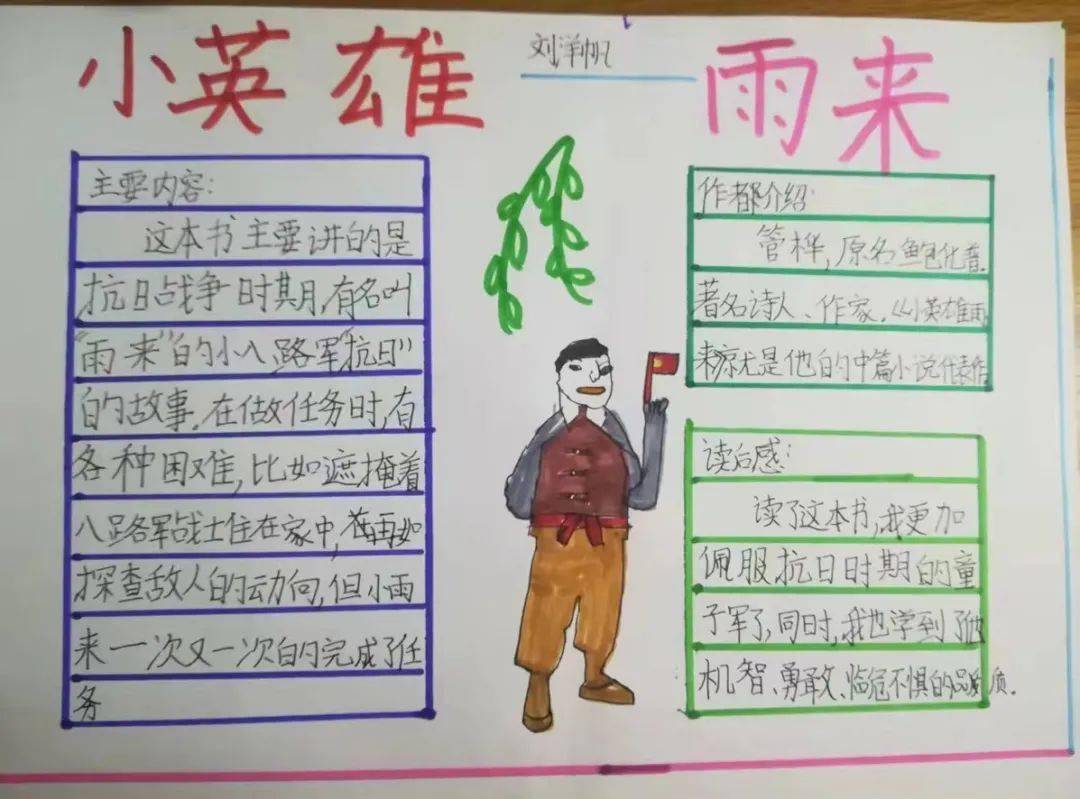 小英雄 雨来
刘洋帆
主要内容:
这本书主要讲的是
抗日战争时期,有名叫
“雨来”的小八路军“抗日”
的故事.在做任务时,有
各种困难,比如遮掩着
八路军战士住在家中,在再如
探查敌人的动向,但小雨
来一次又一次的完成了任
务
作都介绍:
管桦,原名鲍化普.
著名诗人、作家.《小英雄雨
来就是他的中篇小说代表作
读后感:
读了这本书,我更加
佩服抗日时期的童
子军了,同时,我也学到了他
机智、勇敢、临危不惧的品质.